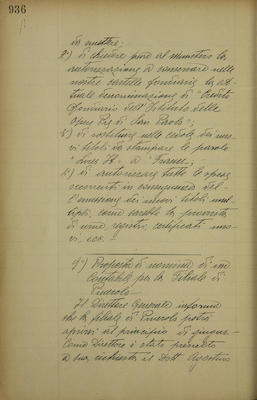 936
da mettere;
2°) di chiedere pure al ministero la
autorizzazione a conservare nelle
nostre cartelle fondiarie la at-
tuale denominazione di "Credito
fondiario dell'Istituto delle
Opere Pie di San Paolo";
3°) di sostituire nelle cedole dei nuo-
vi titoli da stampare la parola
"Lire It." a "Francs";
4°) di autorizzare tutte le spese
occorrenti in conseguenza del-
l'emissione dei nuovi titoli mul-
tipli, come sarebbe la provvista
di urne, registri, certificati nuo-
vi, ecc.
Proposta di nomina di un
Contabile per la Filiale di
Pinerolo
Il Direttore Generale informa
che la filiale di Pinerolo potrà
aprirsi al principio di giugno.
Come Direttore è stato
a sua richiesta il Dott. Agostino